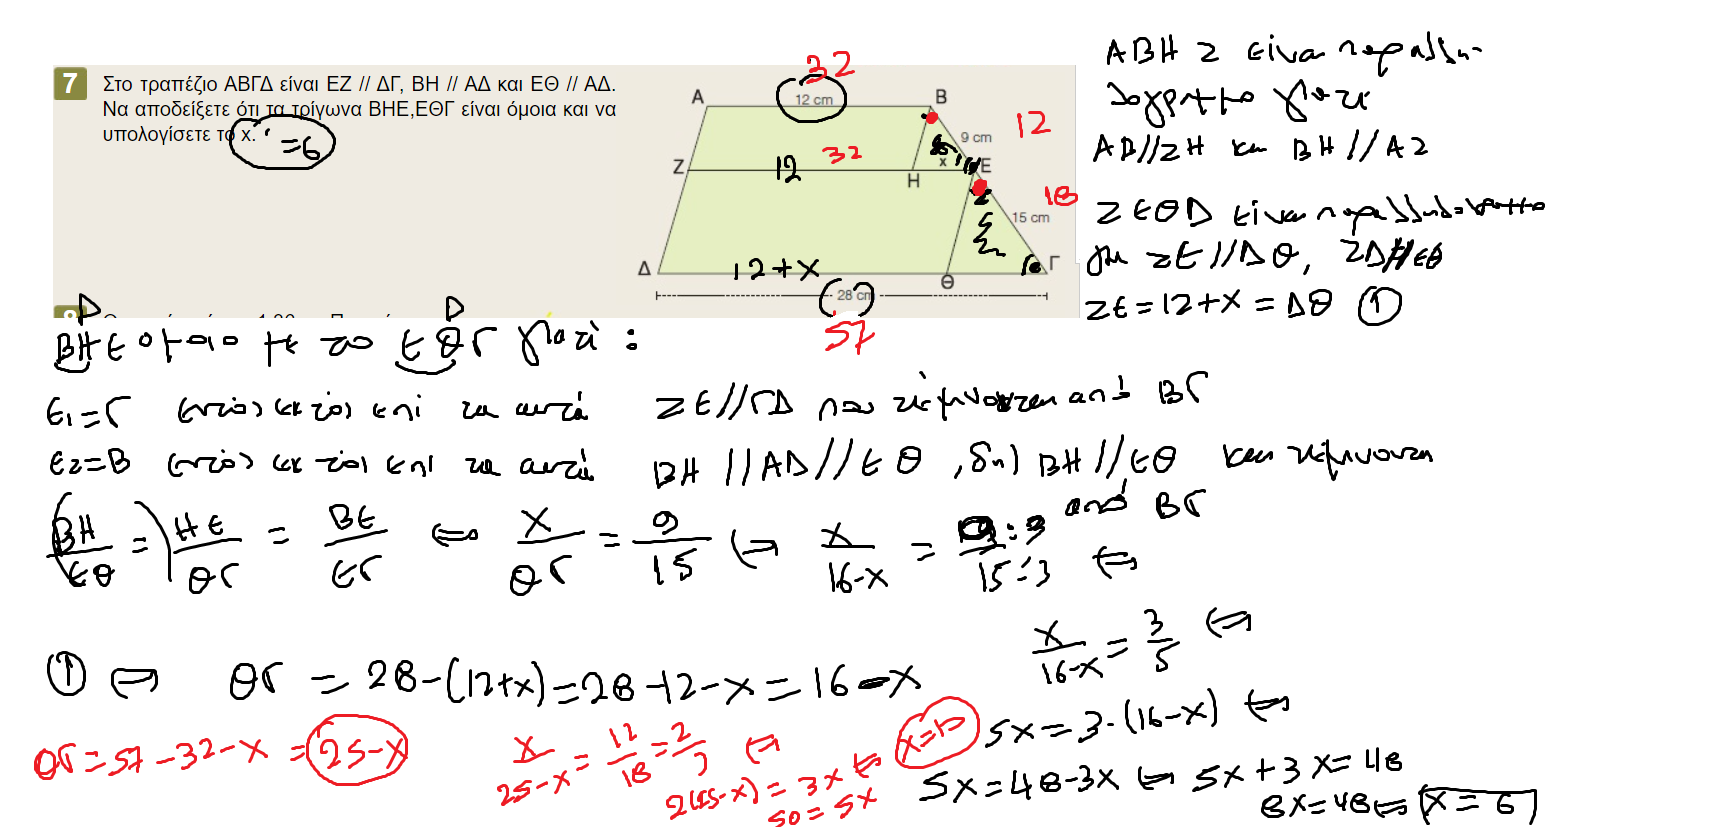 7 Στο τραπέζιο ΑΒΓΔ είναι ΕΖ // ΔΓ, ΒΗ // ΑΔ και ΕΘ // ΑΔ.
Να αποδείξετε ότι τα τρίγωνα ΒΗΕ,ΕΘΓ είναι όμοια και να
υπολογίσετε το x. =6
32
Α 12 cm Β
9 cm 12
Ζ 12 32 Η x Ε
18
15 cm
Δ 12+x Θ Γ
28 cm
57
ΑΒΗΖ είναι παραλλη-
λόγραμμο γιατί
ΑΒ//ΖΗ και ΒΗ//ΑΖ
ΖΕΘΔ είναι παραλληλόγραμμο
για ΖΕ//ΔΘ, ΖΔ//ΕΘ
ΖΕ=12+x=ΔΘ ①
8
ΒΗΕ όμοιο με το ΕΘΓ γιατί :
Ε1=Γ εντός εκτός επί τα αυτά ΖΕ//ΓΔ που τέμνονται από ΒΓ
Ε2=Β εντός εκτός επί τα αυτά ΒΗ//ΑΔ//ΕΘ, δηλ ΒΗ//ΕΘ και τέμνονται
από ΒΓ
(ΒΗ/ΕΘ =) ΗΕ/ΘΓ = ΒΕ/ΕΓ ⇔ x/ΘΓ = 9/15 ⇔ x/16-x = 9:3/15:3 ⇔
x/16-x = 3/5 ⇔
① ⇔ ΘΓ = 28-(12+x)=28-12-x=16-x
5x=3·(16-x) ⇔
5x=48-3x ⇔ 5x+3x=48
8x=48 ⇔ x=6
ΘΓ=57-32-x=25-x
x/25-x = 12/18 = 2/3 ⇔
2(25-x)=3x ⇔
50=5x
x=10